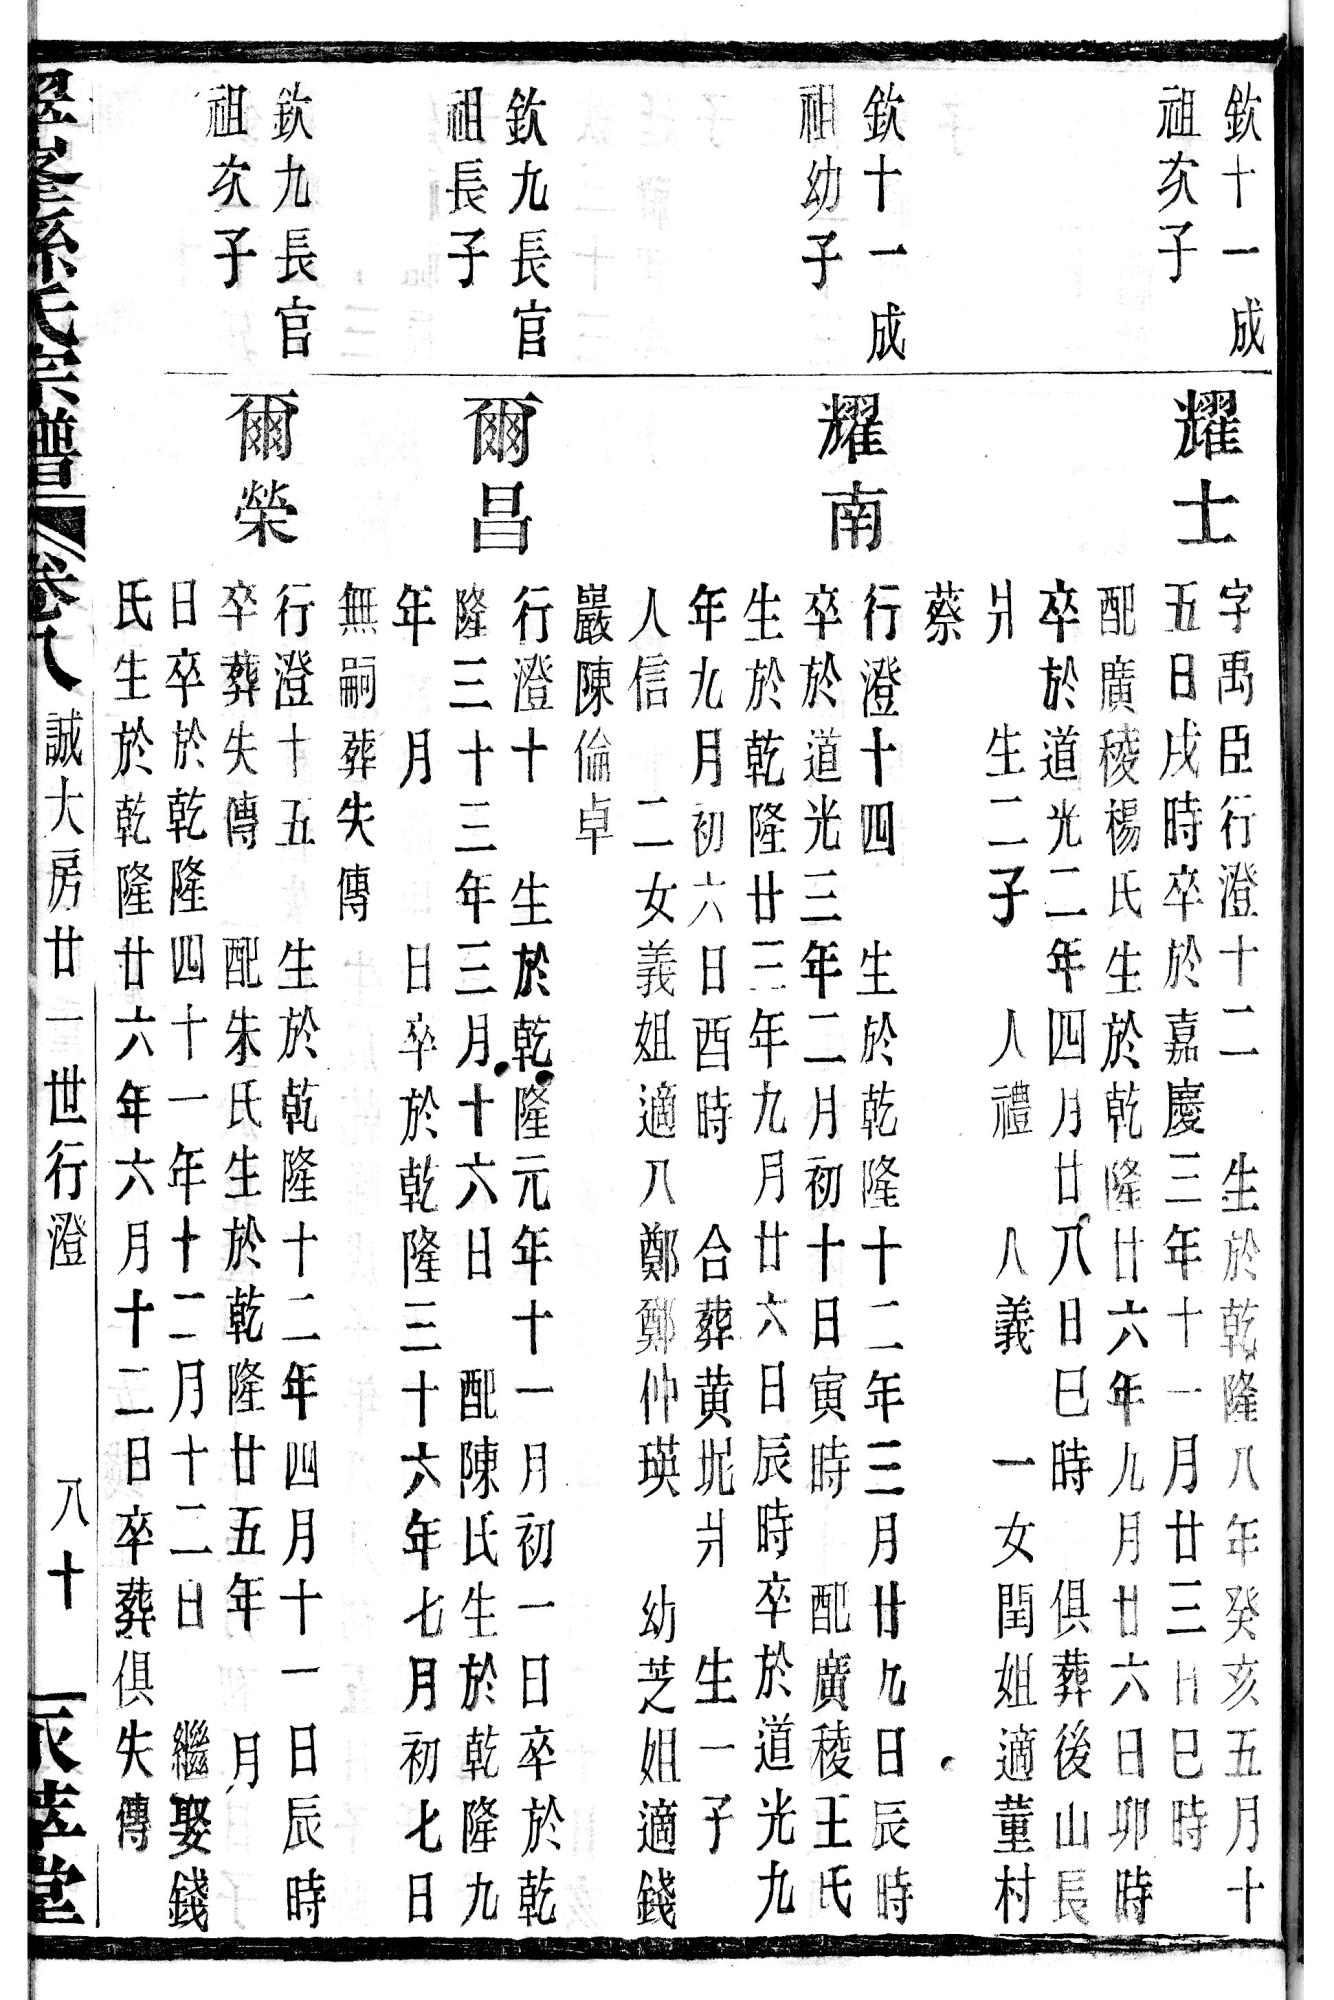 欽十一成
祖次子
耀士
字禹臣行澄十二　生於乾隆八年癸亥五月十
五日戌時卒於嘉慶三年十一月廿三日巳時
配廣稜楊氏生於乾隆廿六年九月廿六日卯時
卒於道光二年四月廿八日巳時　俱葬後山長
爿　生二子　人禮　人義　一女閏姐適董村
蔡
欽十一成
祖幼子
耀南
行澄十四　生於乾隆十二年三月廿九日辰時
卒於道光三年二月初十日寅時　配廣稜王氏
生於乾隆廿三年九月廿六日辰時卒於道光九
年九月初六日酉時　合葬黄坭爿　生一子
人信　二女義姐適八鄭鄭仲瑛　幼芝姐適錢
巖陳倫卓
欽九長官
祖長子
爾昌
行澄十　生於乾隆元年十一月初一日卒於乾
隆三十三年三月十六日　配陳氏生於乾隆九
年　月　日卒於乾隆三十六年七月初七日
無嗣葬失傳
欽九長官
祖次子
爾榮
行澄十五　生於乾隆十二年四月十一日辰時
卒葬失傳　配朱氏生於乾隆廿五年　月
日卒於乾隆四十一年十二月十二日　繼娶錢
氏生於乾隆廿六年六月十二日卒葬俱失傳
孫氏宗譜　卷八　誠大房廿一世行澄　八十　萃堂